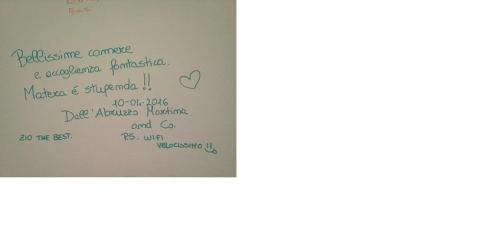 Bellissime camere
e accoglienza fantastica.
Matera é stupenda !!
10-01-2016
Dall'Abruzzo Martina
and Co.
ZIO THE BEST.
P.S. WIFI
VELOCISSIMO !!